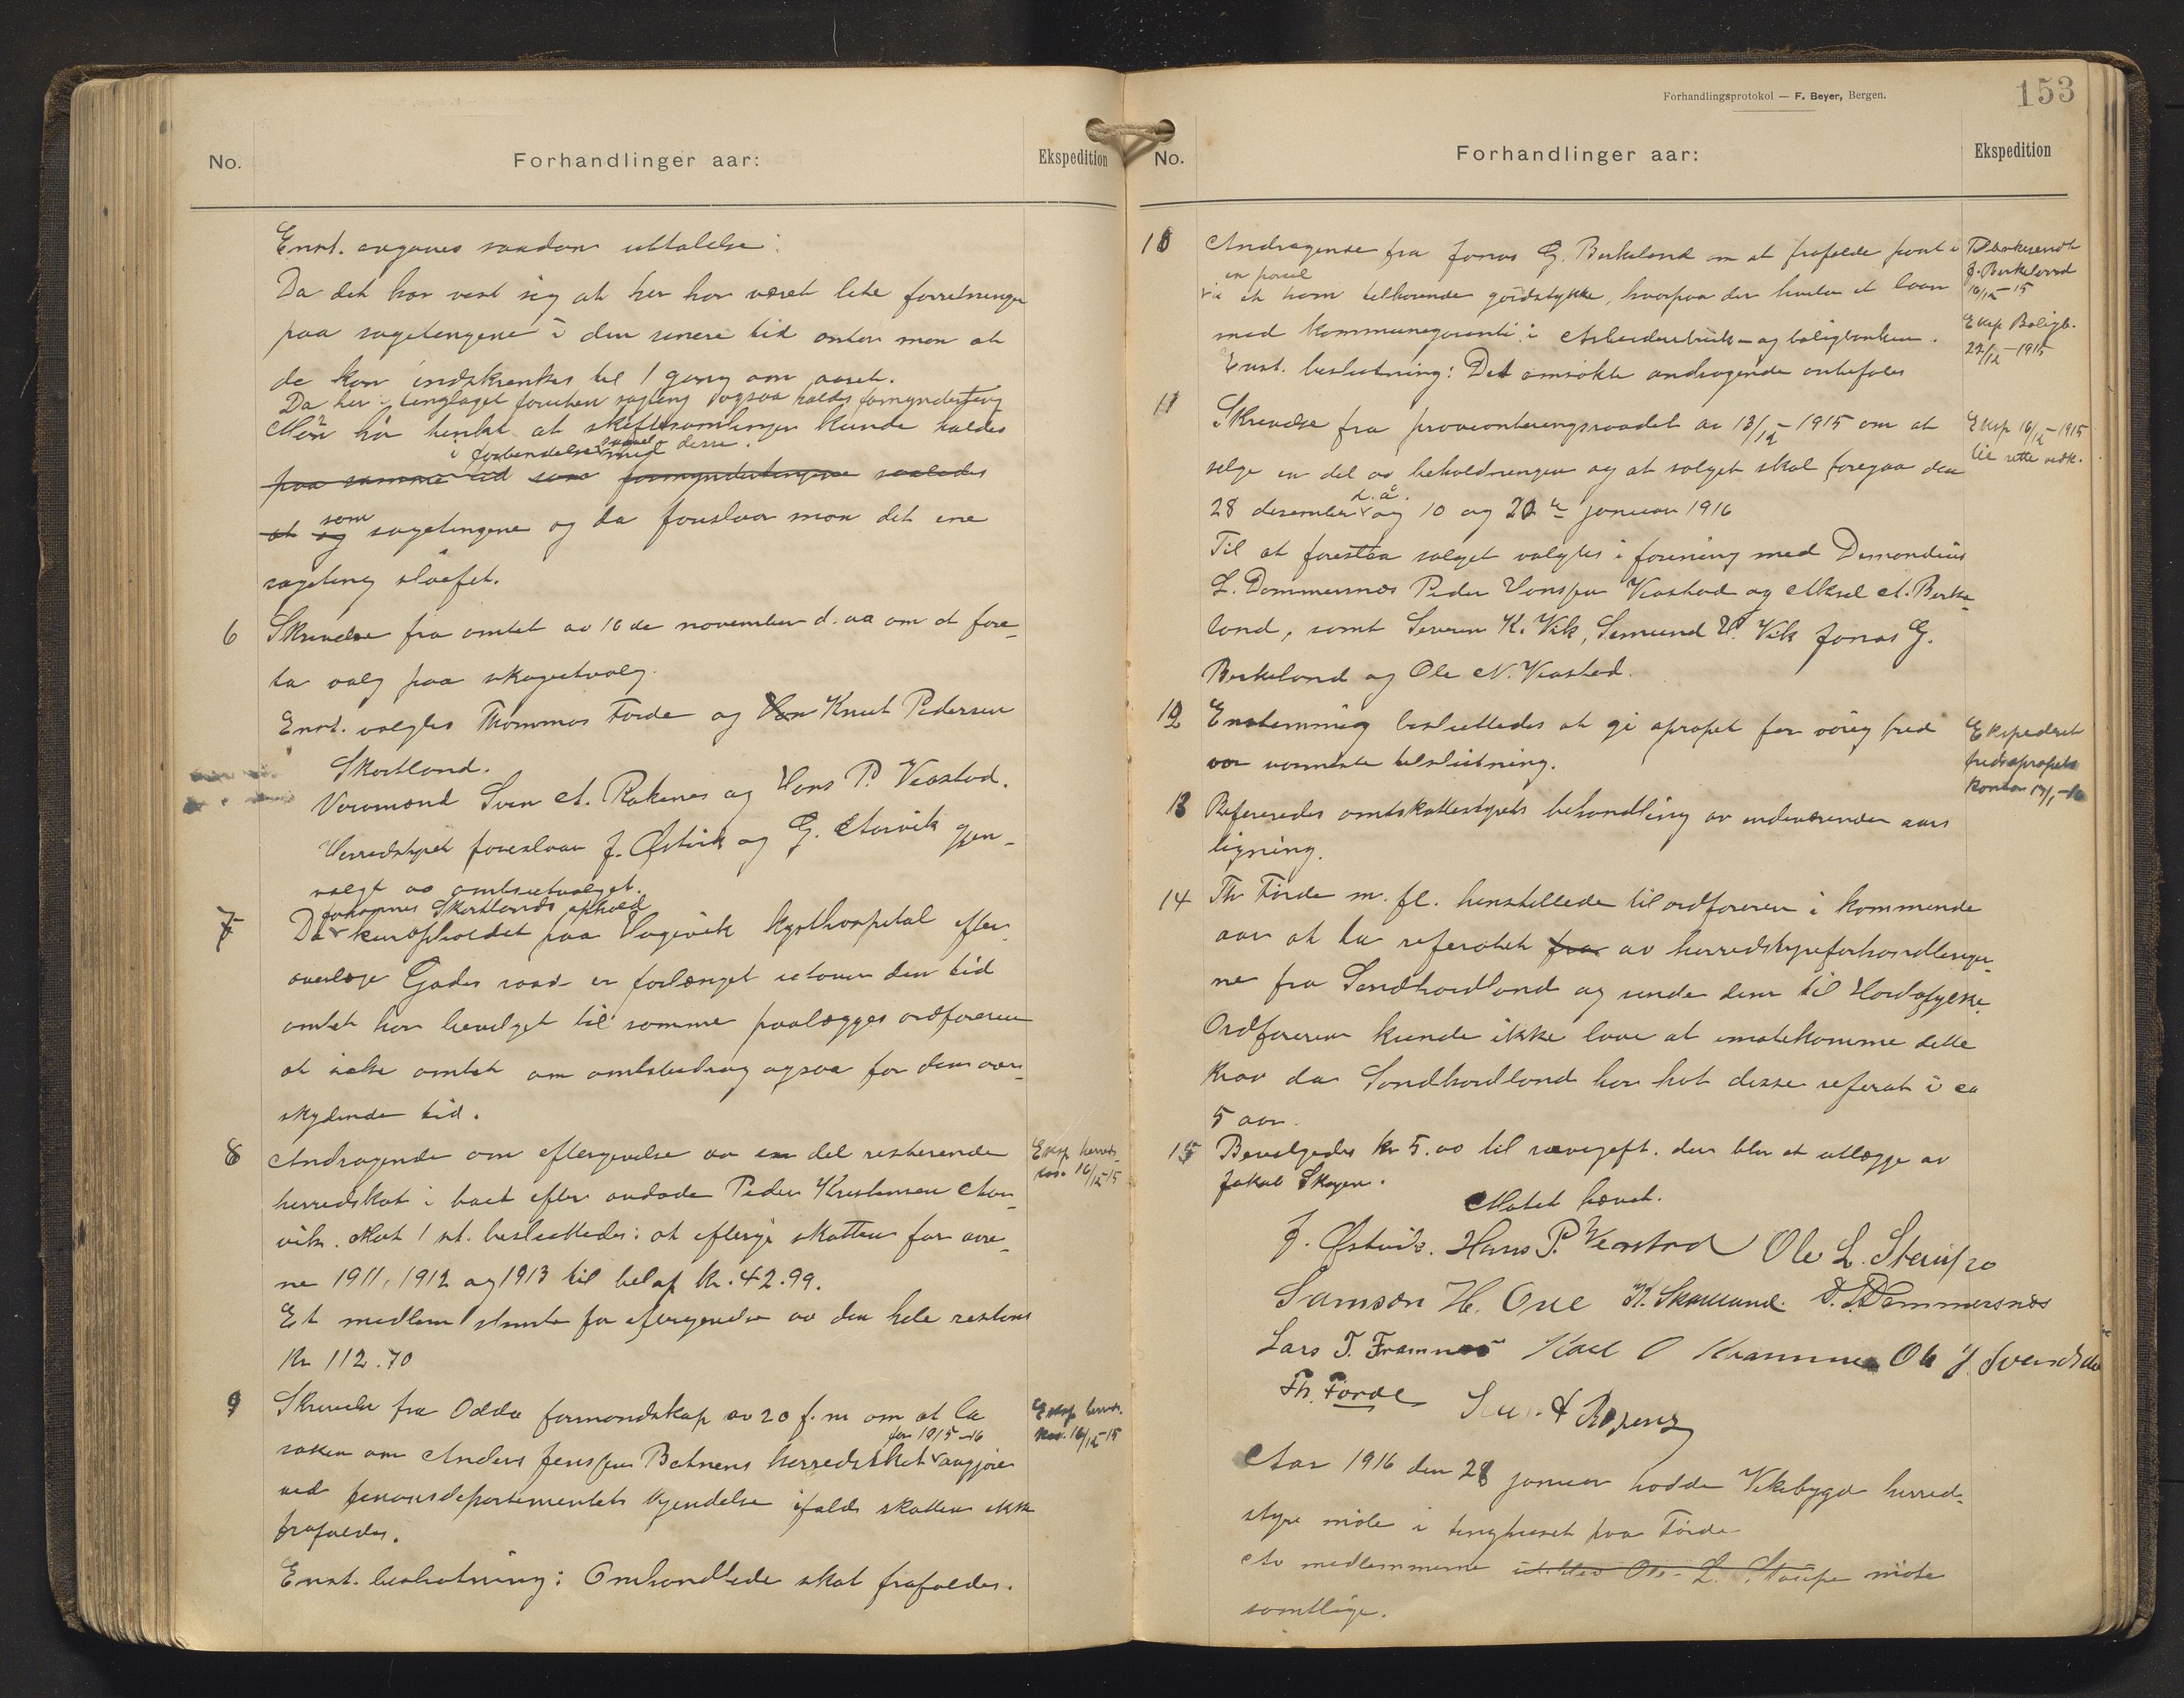 No.
Forhandlinger aar:
Ekspedition
Enst. avgaves saadan uttalelse:
Da det har vist sig at her har været lite forretninger
paa sagetingene i den senere tid anter man at
de kan indskrenkes til 1 gang om aaret.
Da her i tinglaget foruten sagting ogsaa holdes formynderting
Man har tenkt at skiftesamlinger kunde holdes
i forbindelse med disse.
paa samme tid som formyndertingene saaledes
at og som sagetingene og da foreslaar man det ene
sageting sløifet.
6 Skrivelse fra amtet av 10de november d. aa om at fore-
ta valg paa skogutvalg.
Enst. valgtes Thommas Førde og Knut Pedersen
Skartland.
Varamænd Sven A. Røkenes og Hans P. Veastad.
Herredstyret foreslaar J. Østvik og G. Aarvik gjen-
valgt av amtsutvalget.
Johannes Skartlands ophold
7 Da kuropholdet paa Hagevik kysthospital efter
overlæge Gades raad er forlænget utover den tid
amtet har bevilget til samme paalægges ordføreren
at søke amtet om amtsbidrag ogsaa for den over-
skydende tid.
8 Andragende om eftergivelse av en del resterende
herredskat i boet efter avdøde Peder Kristensen Aar-
vik. Mot 1 st. besluttedes: at eftergi skatten for aare-
ne 1911, 1912 og 1913 til beløp kr. 42.99.
Et medlem stemte for eftergivelse av den hele restans
Kr 112.70
Eksp. herreds-
kas. 16/12-15
9 Skrivelse fra Odda formandskap av 20 f. m om at la
saken om Anders Jenssen Betnens herredskat for 1915-16 avgjøre
ved finansdepartementets kjendelse ifald skatten ikke
frafaldes.
Enst. beslutning: Omhandlede skat frafaldes.
Eksp herreds.
kas. 16/12-15
Forhandlingsprotokol — F. Beyer, Bergen.
153
No.
Forhandlinger aar:
Ekspedition
10 Andragende fra Jonas G. Birkeland om at frafalde pant i
en parsel
i et ham tilhørende gårdstykke, hvorpaa der hviler et laan
med kommunegaranti i Arbeiderbruk- og boligbanken.
Enst. beslutning: Det omsøkte andragende anbefales
Tilbakesendt
J. Birkeland
16/12-15
Eksp Boligb.
22/12-1915
11 Skrivelse fra provianteringsraadet av 13/12-1915 om at
selge en del av beholdningen og at salget skal foregaa den
28 desember d. å. og 10 og 20de januar 1916
Til at forestaa salget valgtes i forening med Desmondius
L. Dommersnes Peder Hanssen Veastad og Aksel A. Birke-
land, samt Severin K. Vik, Semund H. Vik Jonas G.
Birkeland og Ole N. Veastad.
Eksp 16/12-1915
til rette vedk.
12 Enstemmig besluttedes at gi opropet for varig fred
vor varmeste tilslutning.
Ekspederet
fredsopropets
kontor
13 Refereredes amtskattestyrets behandling av indeværende aars
ligning.
14 Th Førde m. fl. henstillede til ordføreren i kommende
aar at ta referatet fra av herredstyreforhandlinger-
ne fra Søndhordland og sende dem til Hordafylke.
Ordføreren kunde ikke love at imøtekomme dette
krav da Søndhordland har hat disse referat i ca
5 aar.
15 Bevilgedes kr 5.00 til rævegift. den blir at utlægge av
Jakob Skogen.
Møtet hævet.
J. Østvik. Hans P. Veastad Ole L. Staupe
Samson H. Øve K. Skartland. D. L. Dommersnes
Lars T. Framnes Karl O Ole J Svensbø
Th. Førde
Aar 1916 den 28 januar hadde Vikebygd herred-
styre møte i tinghuset paa Førde
Av medlemmerne uteblev Ole L. Staupe møtte
samtlige.